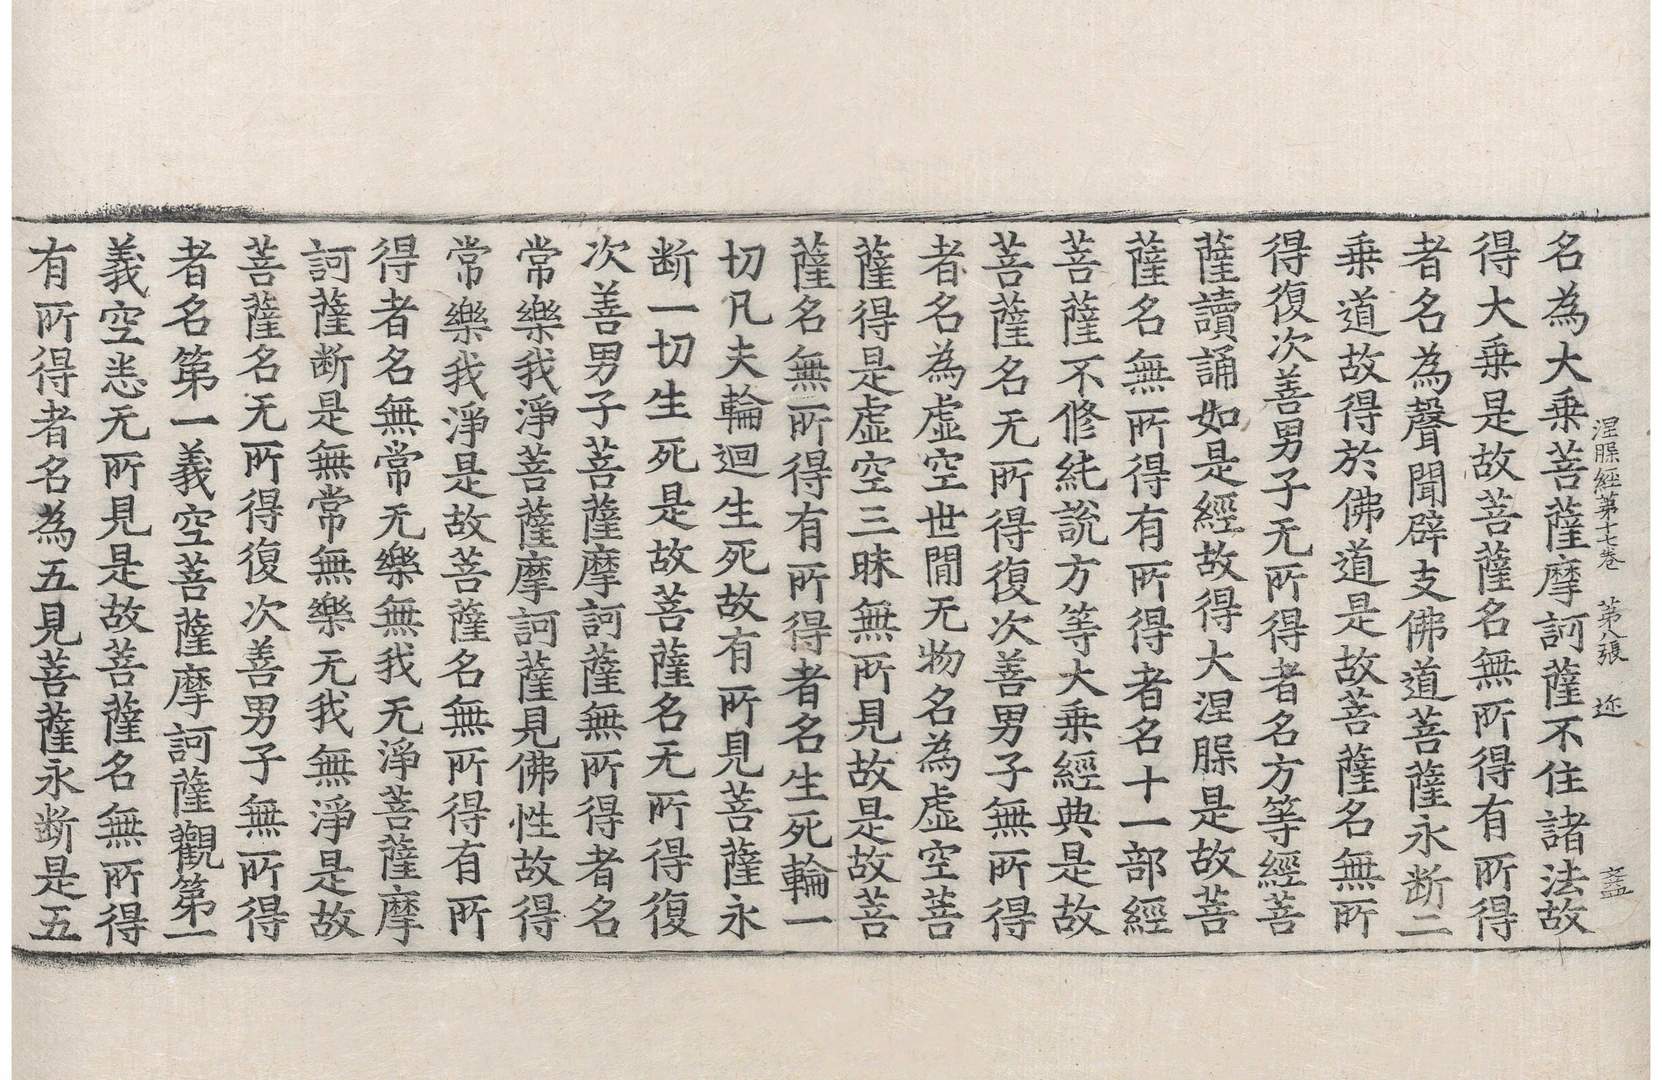 涅槃經第十七卷 第八張 迩 盡
名為大乗菩薩摩訶薩不住諸法故
得大乗是故菩薩名無所得有所得
者名為聲聞辟支佛道菩薩永断二
乗道故得於佛道是故菩薩名無所
得復次善男子无所得者名方等經菩
薩讀誦如是經故得大涅槃是故菩
薩名無所得有所得者名十一部經
菩薩不修純說方等大乗經典是故
菩薩名无所得復次善男子無所得
者名為虛空世間无物名為虛空菩
薩得是虛空三昧無所見故是故菩
薩名無所得有所得者名生死輪一
切凡夫輪迴生死故有所見菩薩永
断一切生死是故菩薩名无所得復
次善男子菩薩摩訶薩無所得者名
常樂我淨菩薩摩訶薩見佛性故得
常樂我淨是故菩薩名無所得有所
得者名無常无樂無我无淨菩薩摩
訶薩断是無常無樂无我無淨是故
菩薩名无所得復次善男子無所得
者名第一義空菩薩摩訶薩觀第一
義空悉无所見是故菩薩名無所得
有所得者名為五見菩薩永断是五